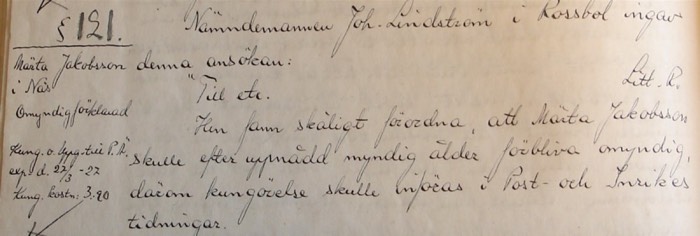 § 121.
Nämndemannen Joh. Lindström i Rossbol ingav
Märta Jakobsson
i Näs
Omyndigförklarad
Kung. o.
exp. d. 27/3 -27
Kung. kostn: 3.90
denna ansökan:
Litt. R.
"Till etc.
Hen fann skäligt förordna, att Märta Jakobsson
skulle efter uppnådd myndig ålder förbliva omyndig,
därom kungörelse skulle införas i Post- och Inrikes
tidningar.